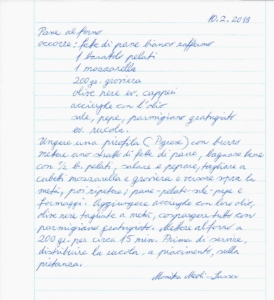 10.2.2018
Pane al forno
occorre: fette di pane bianco raffermo
1 barattolo pelati
1 mozzarella
200 gr. groviera
olive nere ev. capperi
acciughe con l'olio
sale, pepe, parmigiano grattugiato
ev. rucola.
Ungere una pirofila (Pyrex) con burro
mettere uno strato di fette di pane, bagnare bene
con ½ b. pelati, salare e pepare, tagliare a
cubetti mozzarella e groviera e versare sopra la
metà, poi ripetere: pane-pelati-sale-pepe e
formaggi. Aggiungere acciughe con loro olio,
olive nere tagliate a metà, cospargere tutto con
parmigiano grattugiato. Mettere al forno a
200 gr. per circa 15 min. Prima di servire,
distribuire la rucola, a piacimento, sulla
pietanza.
Monika